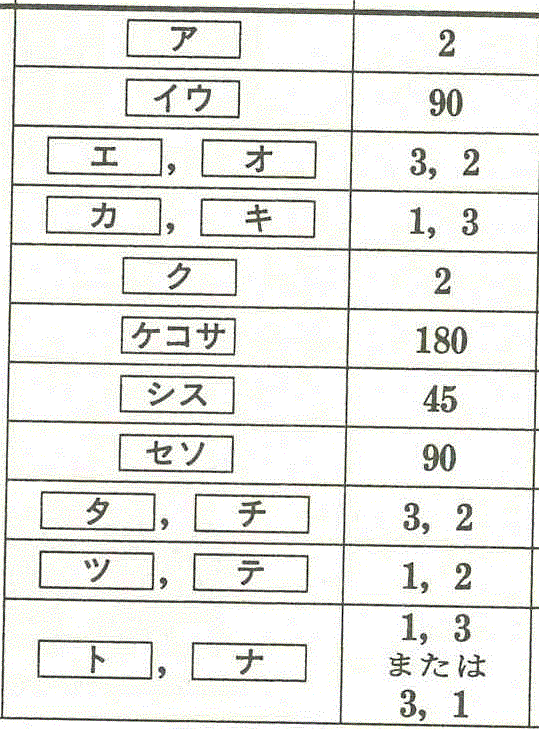 ア 2
イウ 90
エ , オ 3, 2
カ , キ 1, 3
ク 2
ケコサ 180
シス 45
セソ 90
タ , チ 3, 2
ツ , テ 1, 2
ト , ナ 1, 3
または
3, 1